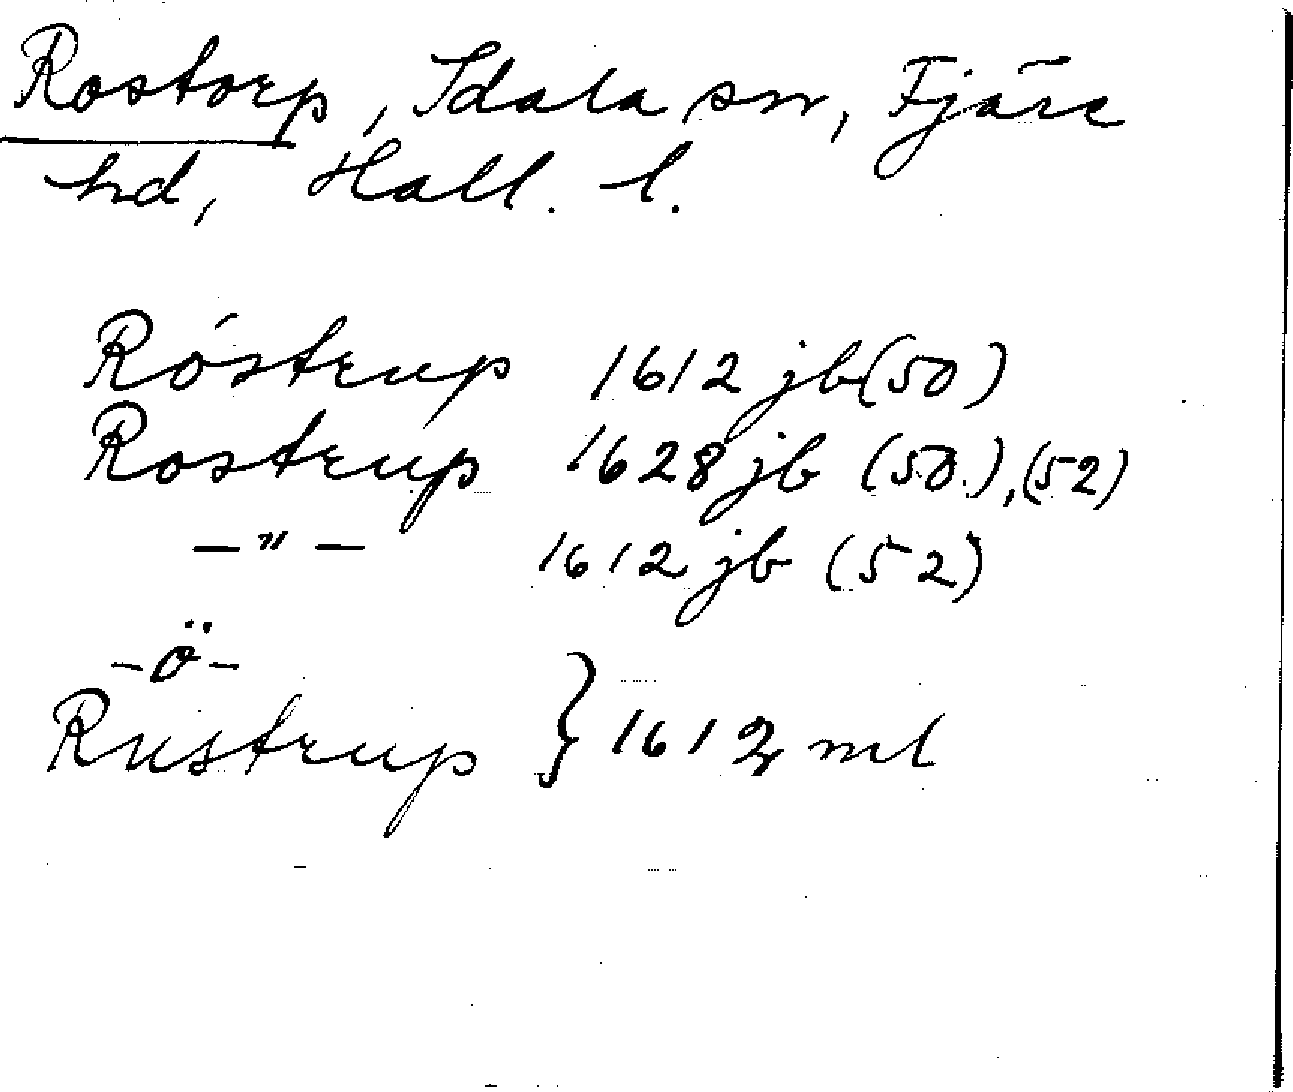 Rostorp, Idala sn, Fjäre
hd, Hall. l.
Róstrup 1612 jb (50)
Rostrup 1628 jb (50), (52)
—"— 1612 jb (52)
-ö-
Rustrup } 1612 ml